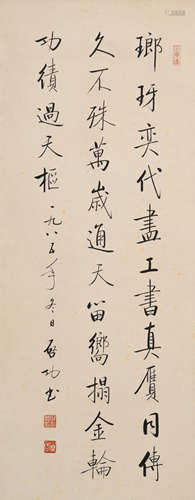 瑯玡奕代盡工書真贋同傳
久不殊萬歲通天留響搨金輪
功績過天樞一九八五年冬日啟功書